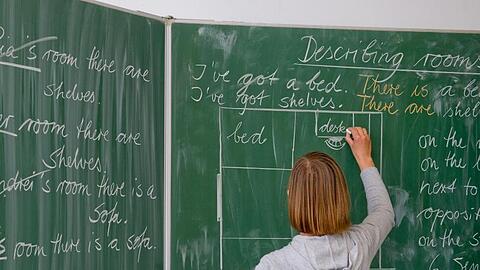 's room there are
shelves.
room there are
shelves.
's room there is a
sofa.
room there is a sofa.
Describing rooms
I've got a bed. There is a be
I've got shelves. There are shel
bed
desk
on the
on the
next to
opposit
on the